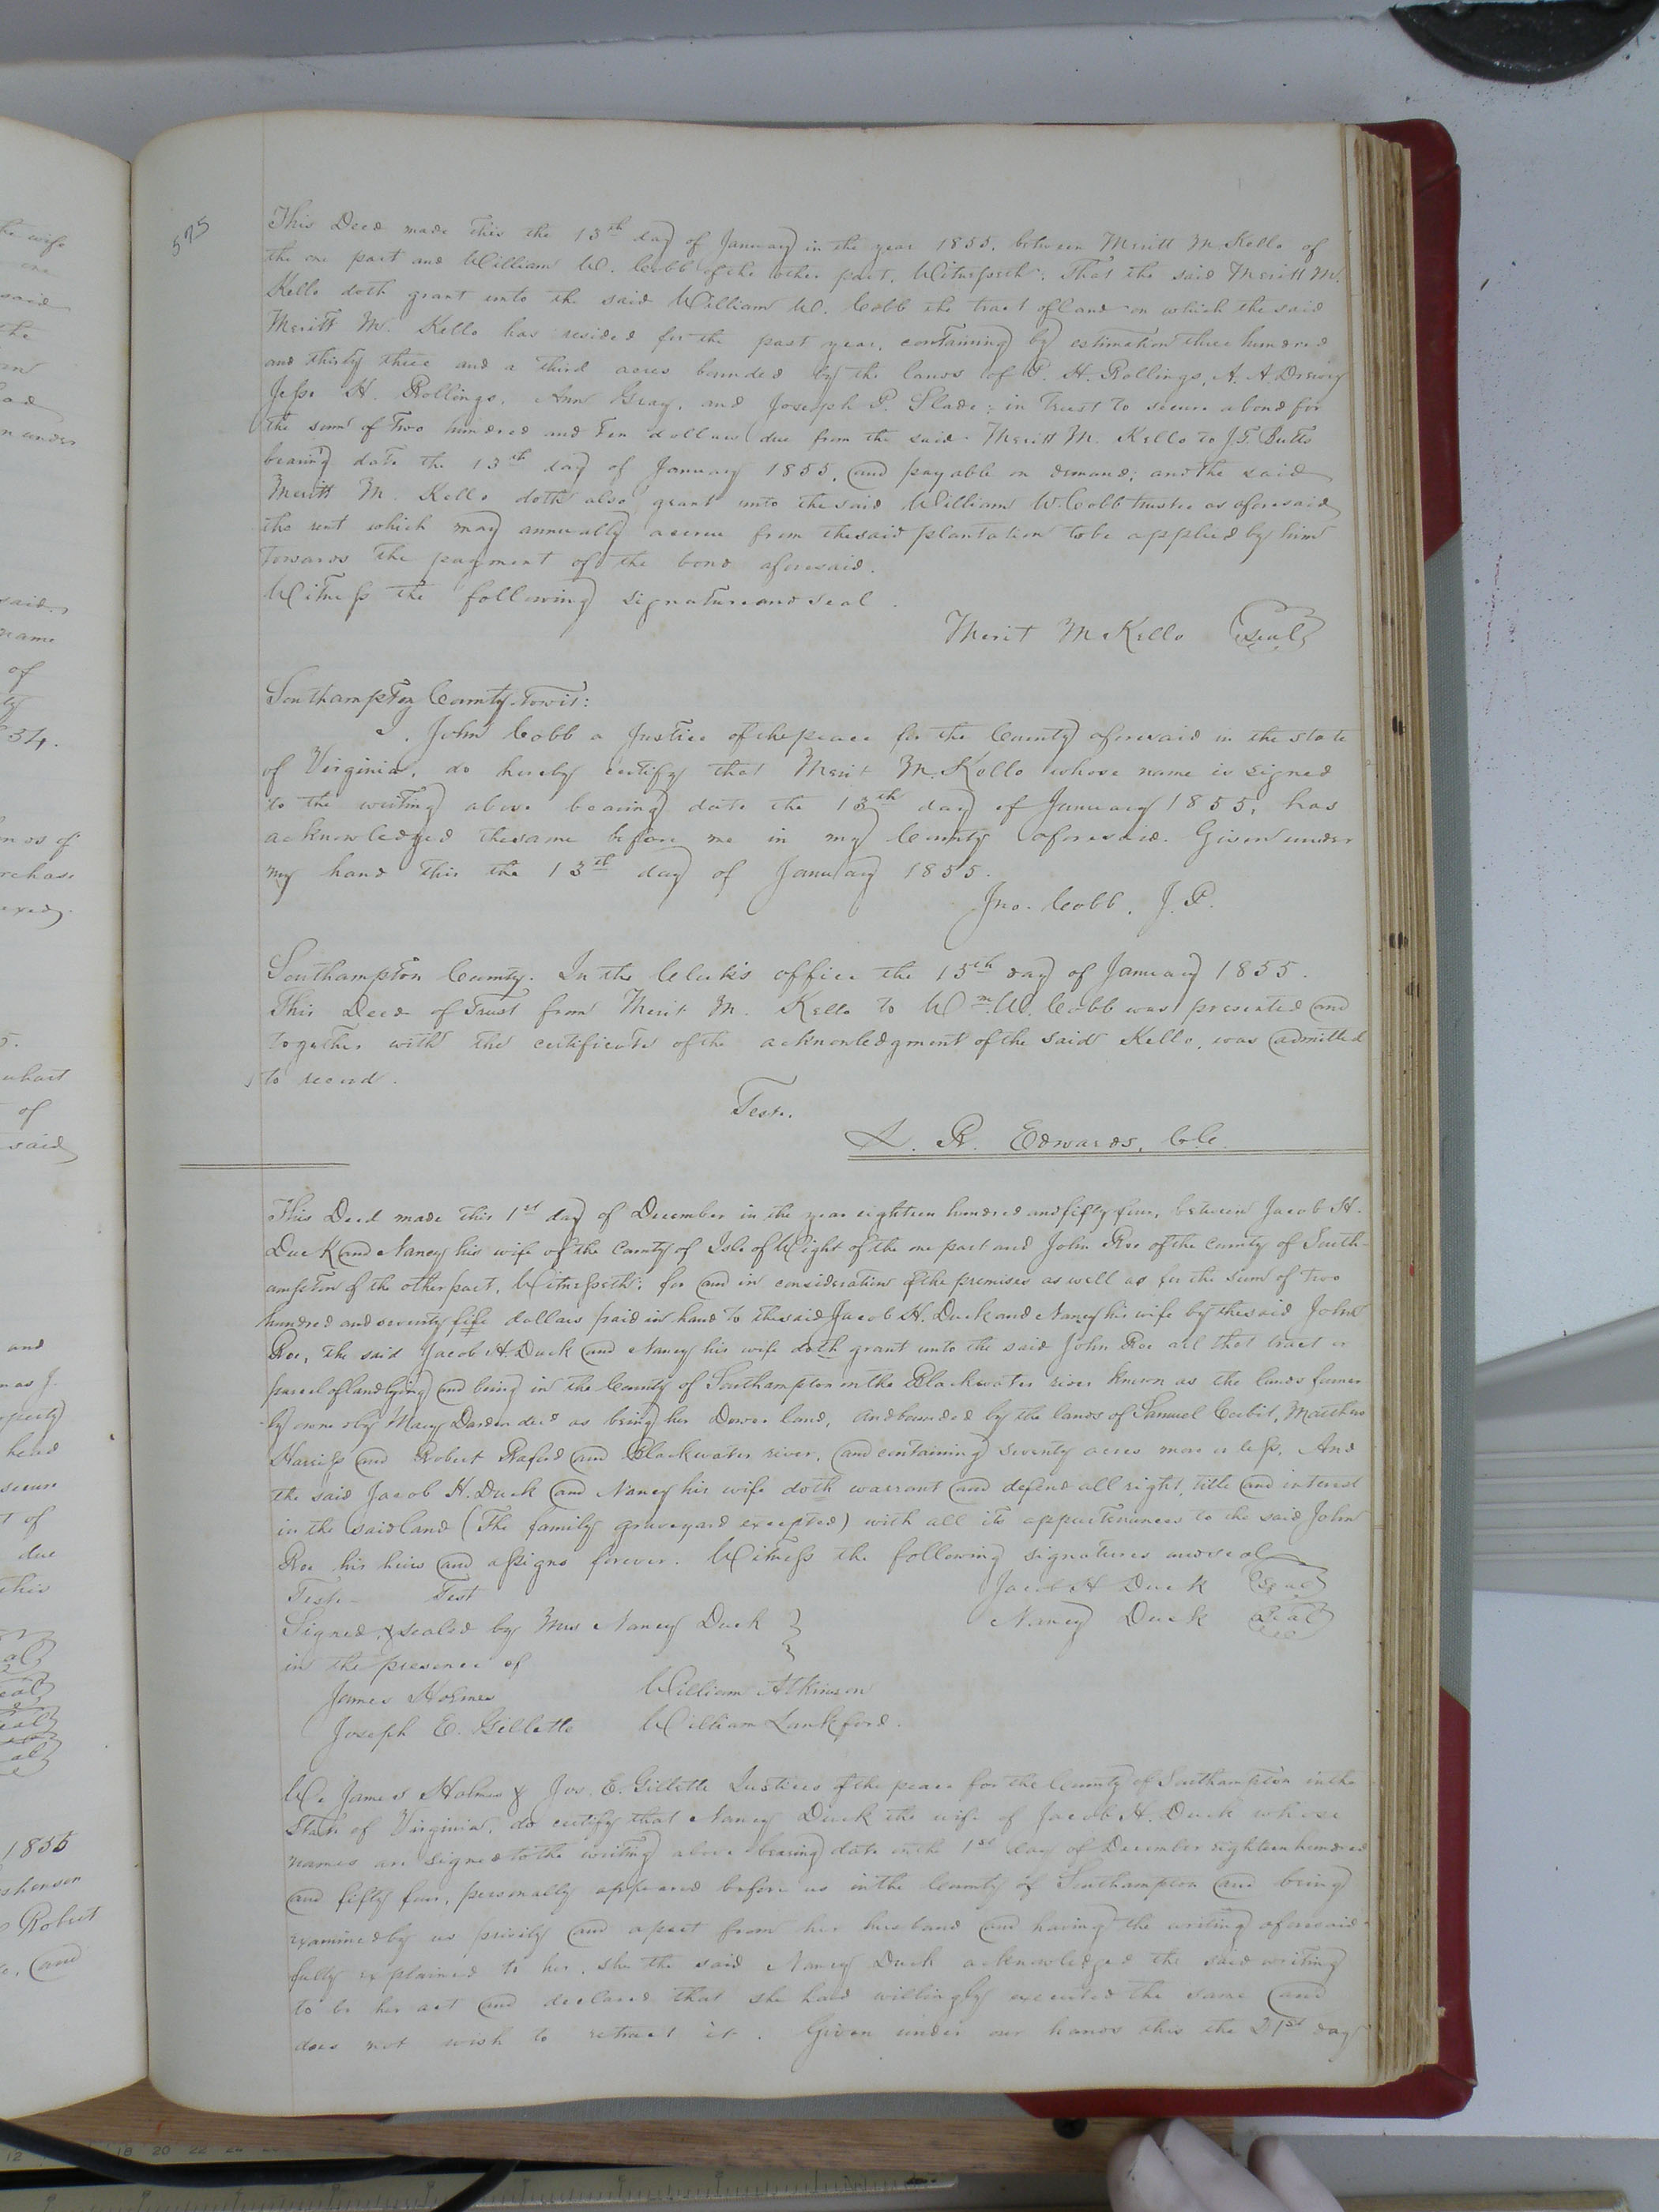 575
This Deed made this the 13th day of January in the year 1855, between Meritt M. Kello of
the one part and William W. Cobb of the other part. Witnesseth: That the said Meritt M.
Kello doth grant unto the said William W. Cobb the tract of land on which the said
Meritt M. Kello has resided for the past year, containing by estimation three hundred
and thirty three and a third acres bounded by the lands of P. H. Rollings, A. A. Drewry
Jesse H. Rollings, Ann Gray, and Joseph P. Slade; in Trust to secure a bond for
the sum of Two hundred and Ten dollars due from the said Meritt M. Kello to J.T. Butts
bearing date the 13th day of January 1855, and payable on demand; and the said
Meritt M. Kello doth also grant unto the said William W. Cobb trustee as aforesaid
the rent which may annually accrue from the said plantation to be applied by him
towards the payment of the bond aforesaid.
Witness the following signature and seal.
Merit M Kello seal
Southampton County, towit:
I, John Cobb a Justice of the peace for the County aforesaid in the state
of Virginia, do hereby certify that Merit M. Kello whose name is signed
to the writing above bearing date the 13th day of January 1855, has
acknowledged the same before me in my County aforesaid. Given under
my hand this the 13th day of January 1855.
Jno. Cobb, J. P.
Southampton County. In the Clerk's office the 15th day of January 1855.
This Deed of Trust from Merit M. Kello to Wm. W. Cobb was presented and
together with the certificate of the acknowledgment of the said Kello, was admitted
to record.
Teste.
L. R. Edwards, C.C.
This Deed made this 1st day of December in the year eighteen hundred and fifty four, between Jacob H.
Duck and Nancy his wife of the County of Isle of Wight of the one part and John Roe of the County of South-
ampton of the other part, Witnesseth: for and in consideration of the premises as well as for the Sum of two
hundred and seventy fife dollars paid in hand to the said Jacob H. Duck and Nancy his wife by the said John
Roe, the said Jacob H. Duck and Nancy his wife doth grant unto the said John Roe all that tract or
parcel of land lying and being in the County of Southampton on the Blackwater river known as the lands former
ly owned by Mary Darden decd as being her Dower land, and bounded by the lands of Samuel Corbit, Matthew
Harriss and Robert Raford and Blackwater river, and containing seventy acres more or less. And
the said Jacob H. Duck and Nancy his wife doth warrant and defend all right, title and interest
in the said land (The family graveyard excepted) with all its appurtenances to the said John
Roe his heirs and assigns forever. Witness the following signatures and seal
Teste Test Jacob H Duck Seal
Signed, & sealed by Mrs Nancy Duck Nancy Duck Seal
in the presence of
James Holmes William Atkinson
Joseph E. Gillette William Lankford.
We James Holmes & Jos. E. Gillette Justices of the peace for the County of Southampton in the
State of Virginia, do certify that Nancy Duck the wife of Jacob H. Duck whose
names are signed to the writing above bearing date on the 1st day of December eighteen hundred
and fifty four, personally appeared before us in the County of Southampton and being
examined by us privily and apart from her husband and having the writing aforesaid
fully explained to her, she the said Nancy Duck acknowledged the said writing
to be her act and declared that she had willingly executed the same and
does not wish to retract it. Given under our hands this the 21st day